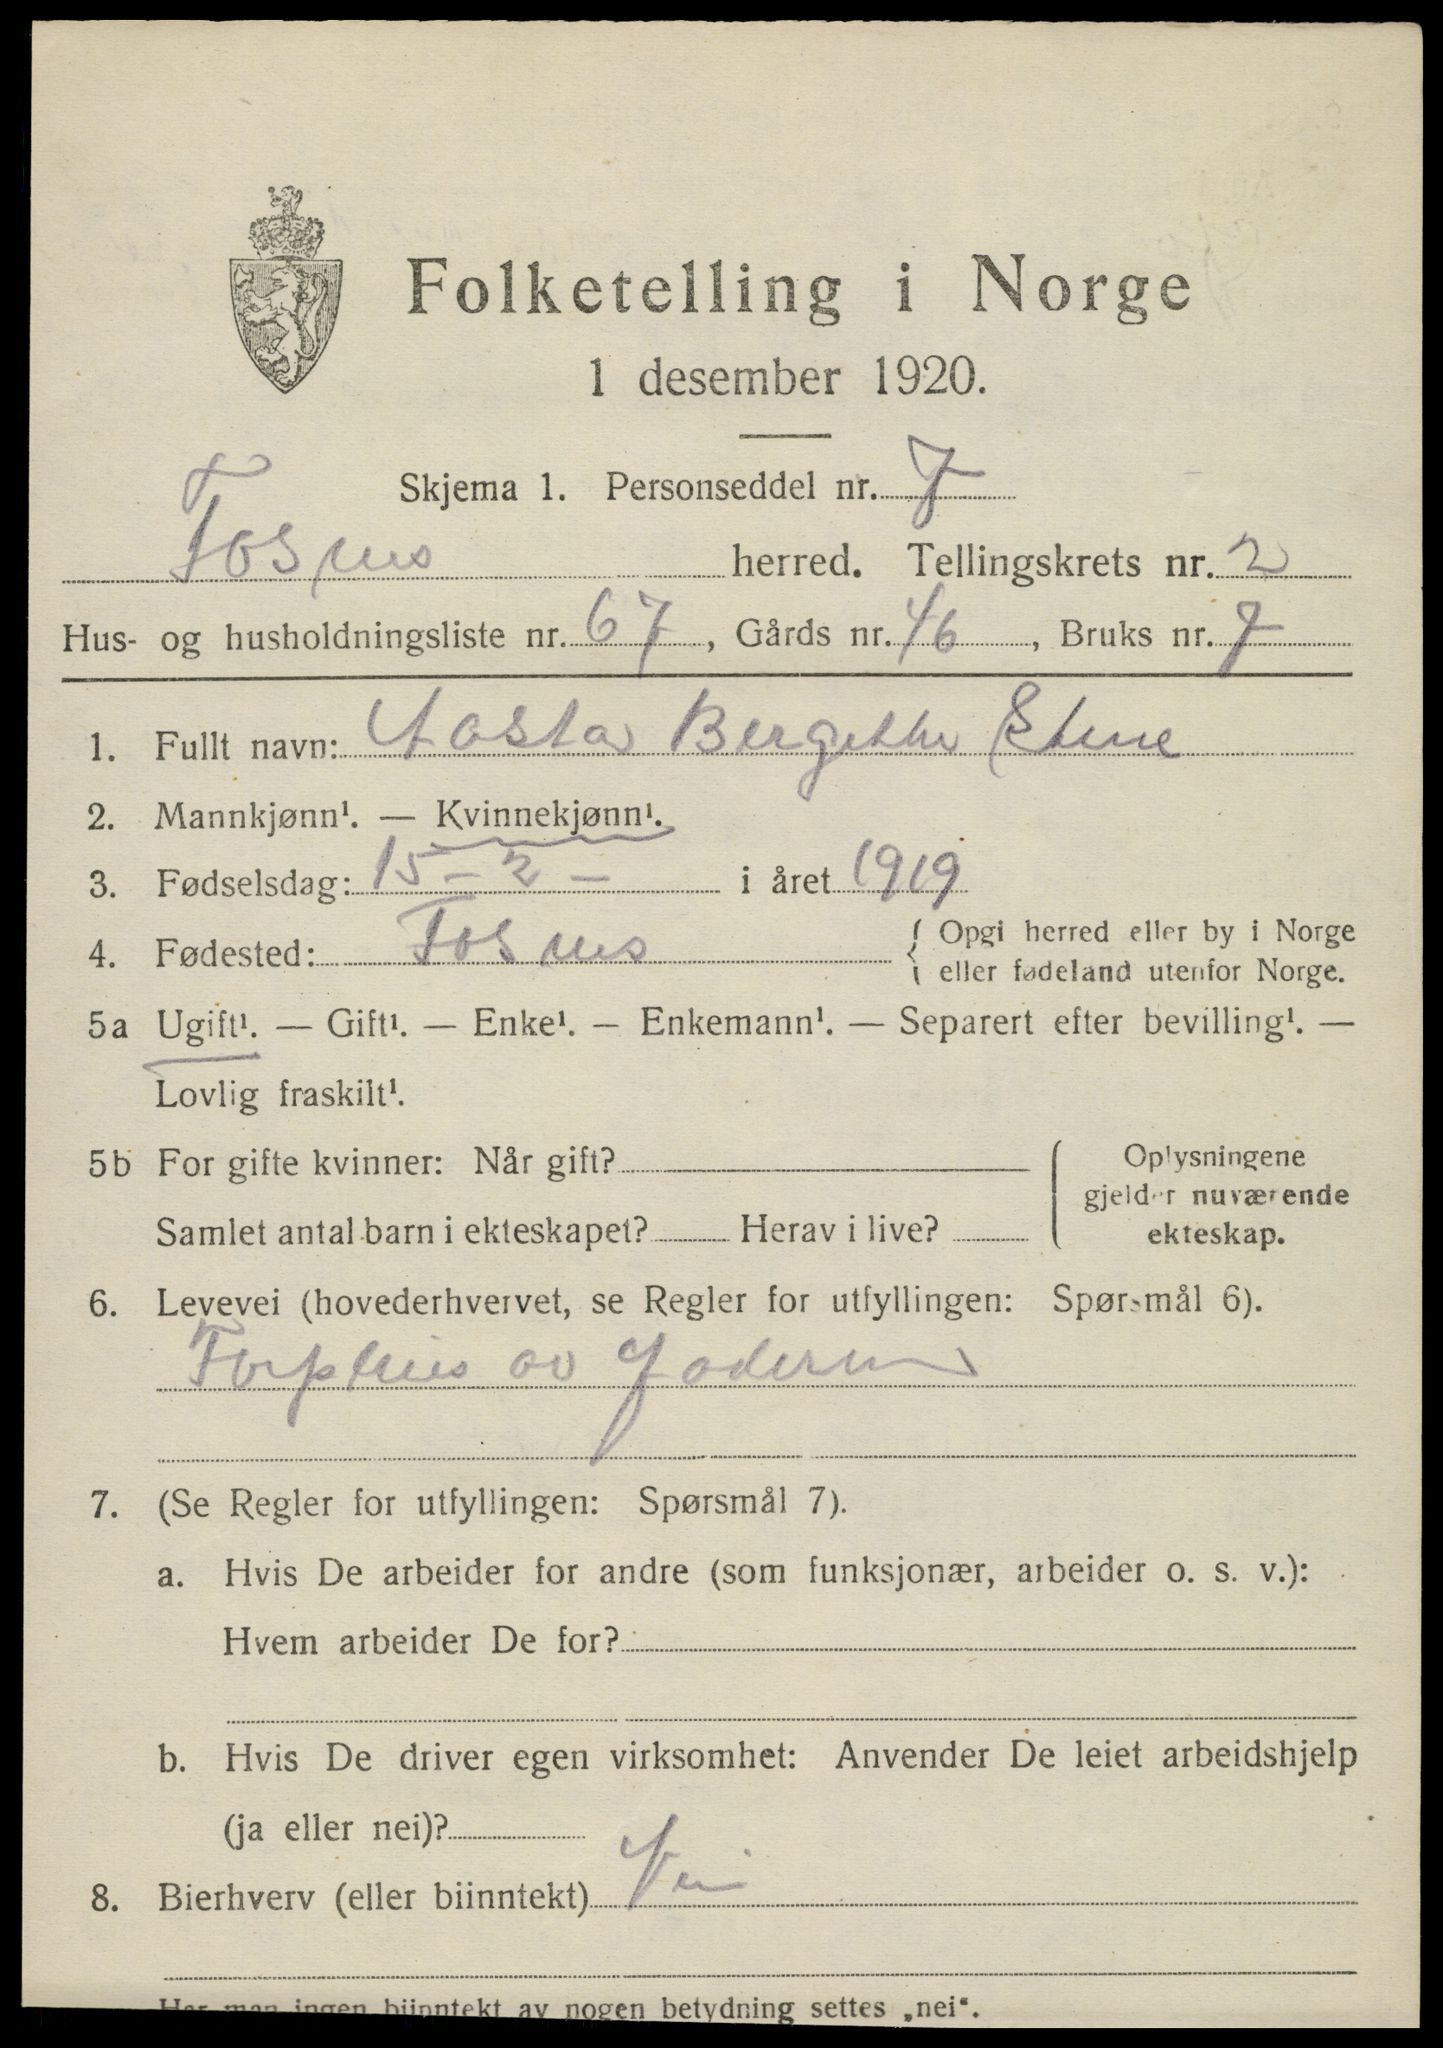 Folketelling i Norge
1 desember 1920.
Skjema 1. Personseddel nr. 7
Fosnes herred. Tellingskrets nr. 2
Hus- og husholdningsliste nr. 67, Gårds nr. 46, Bruks nr. 7
1. Fullt navn: Aasta Bergitte Stene
2. Mannkjønn¹. — Kvinnekjønn¹.
3. Fødselsdag: 15 - 2 - i året 1919
4. Fødested: Fosnes { Opgi herred eller by i Norge
eller fødeland utenfor Norge.
5a Ugift¹. — Gift¹. — Enke¹. — Enkemann¹. — Separert efter bevilling¹. —
Lovlig fraskilt¹.
5b For gifte kvinner: Når gift? { Oplysningene
gjelder nuværende
Samlet antal barn i ekteskapet? Herav i live? ekteskap.
6. Levevei (hovederhvervet, se Regler for utfyllingen: Spørsmål 6).
Forpleies av Faderen
7. (Se Regler for utfyllingen: Spørsmål 7).
a. Hvis De arbeider for andre (som funksjonær, arbeider o. s. v.):
Hvem arbeider De for?
b. Hvis De driver egen virksomhet: Anvender De leiet arbeidshjelp
(ja eller nei)?
8. Bierhverv (eller biinntekt) Nei
Har man ingen biinntekt av nogen betydning settes „nei“.